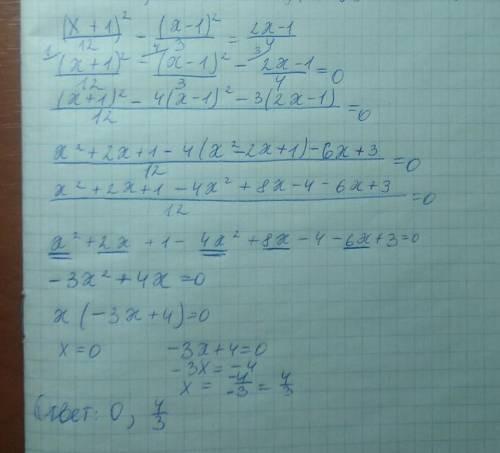 (x+1)²/12 - (x-1)²/3 = (2x-1)/4
¹(x+1)²/12 - ⁴(x-1)²/3 - ³(2x-1)/4 = 0
((x+1)² - 4(x-1)² - 3(2x-1))/12 = 0
(x² + 2x + 1 - 4(x² - 2x + 1) - 6x + 3)/12 = 0
(x² + 2x + 1 - 4x² + 8x - 4 - 6x + 3)/12 = 0
x² + 2x + 1 - 4x² + 8x - 4 - 6x + 3 = 0
-3x² + 4x = 0
x(-3x + 4) = 0
x = 0 -3x + 4 = 0
-3x = -4
x = -4/-3 = 4/3
Ответ: 0, 4/3